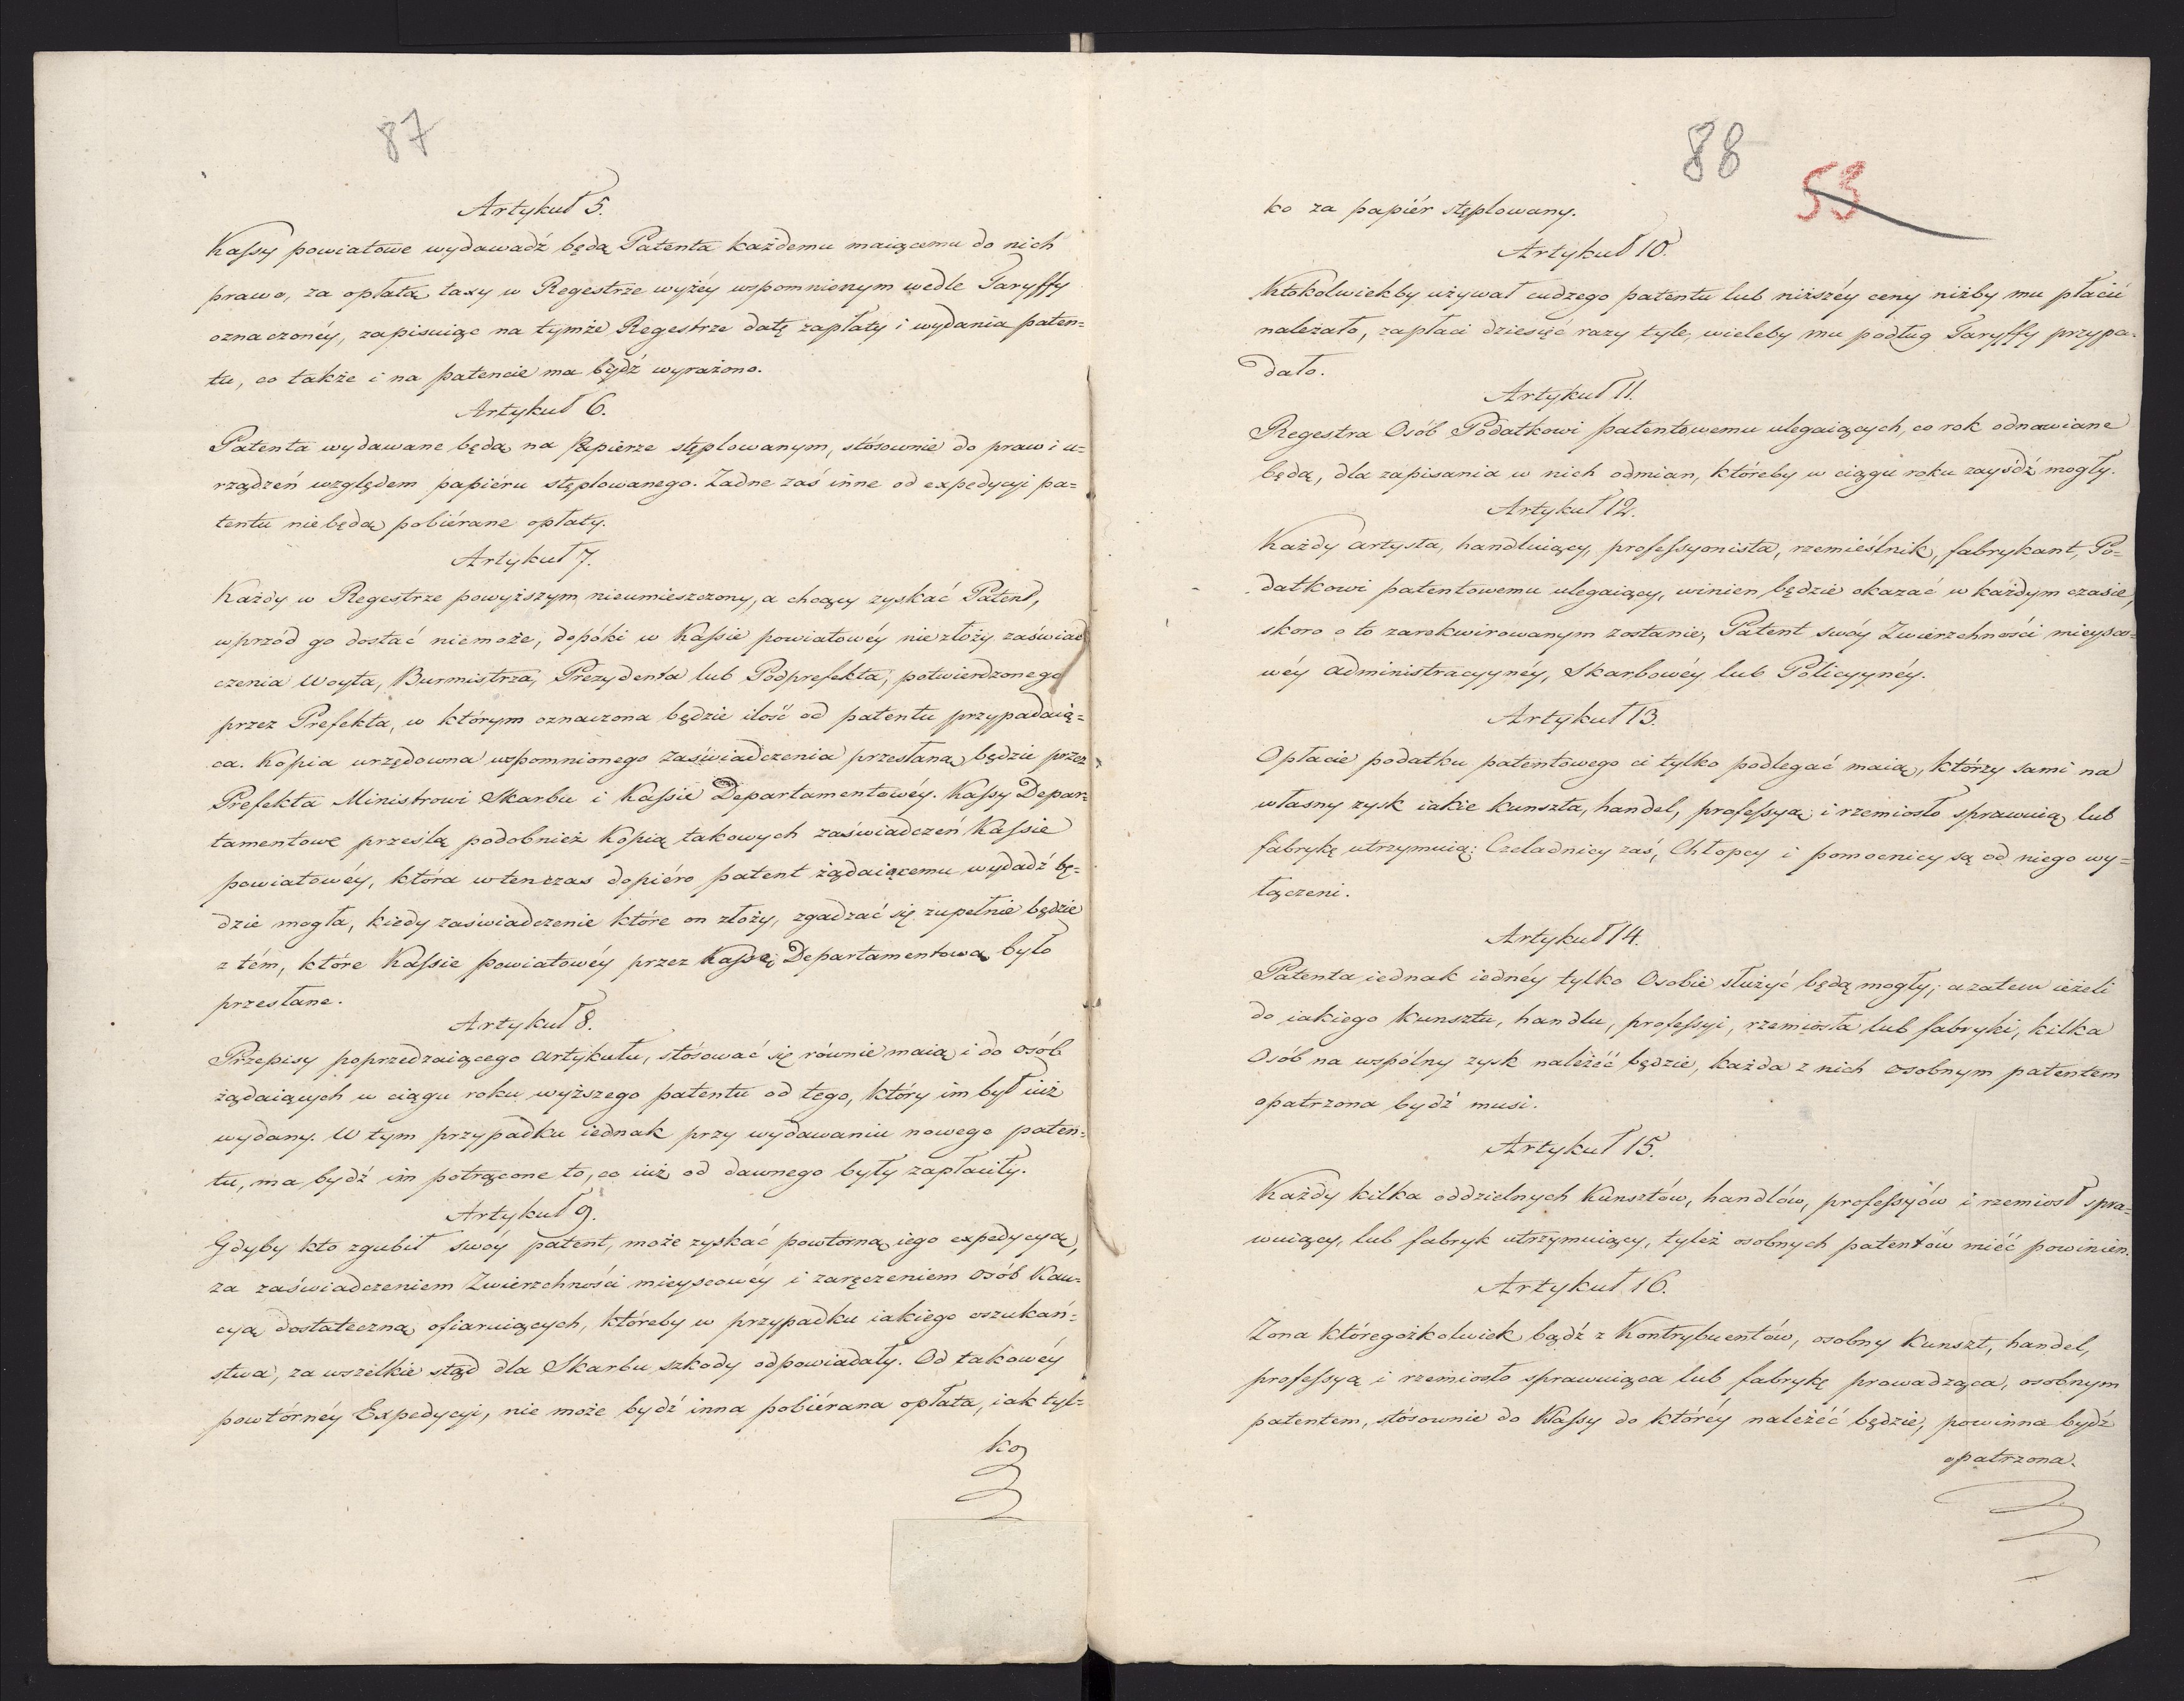 87
Artykuł 5.
Kassy powiatowe wydawadź będą Patenta każdemu maiącemu do nich
prawo, za opłatą taxy w Regestrze wyżéy wspomnionym wedle Taryffy
oznaczonéy, zapisuiąc na tymże Regestrze datę zapłaty i wydania paten=
tu, co także i na patencie ma bydź wyrażono.
Artykuł 6.
Patenta wydawane będą na papierze stęplowanym, stósownie do praw i u=
rządzeń względem papiéru stęplowanego. Żadne zaś inne od expedycyi pa=
tentu niebędą pobiérane opłaty.
Artykuł 7.
Każdy w Regestrze powyższym nieumieszczony, a chcący zyskać Patent,
wprzód go dostać niemoże, dopóki w Kassie powiatowéy niezłoży zaświad
czenia Woyta, Burmistrza, Prezydenta lub Podprefekta, potwierdzonego
przez Prefekta, w którym oznaczona będzie ilość od patentu przypadaią=
ca. Kopia urzędowna wspomnionego zaświadczenia przesłaną będzie przez
Prefekta Ministrowi Skarbu i Kassie Departamentowéy. Kassy Depar=
tamentowe prześlą podobnież Kopią takowych zaświadczeń Kassie
powiatowéy, która wtenczas dopiéro patent żądaiącemu wydadź bę=
dzie mogła, kiedy zaświadczenie które on złoży, zgadzać się zupełnie będzie
z tém, które Kassie powiatowéy przez Kassę Departamentową było
przesłane.
Artykuł 8.
Przepisy poprzedzaiącego artykułu, stósować się równie maią i do osób
żądaiących w ciągu roku wyższego patentu od tego, który im był iuż
wydany. W tym przypadku iednak przy wydawaniu nowego paten=
tu, ma bydź im potrącone to, co iuż od dawnego były zapłaciły.
Artykuł 9.
Gdyby kto zgubił swóy patent, może zyskać powtorną iego expedycyą,
za zaświadczeniem Zwierzchności mieyscowéy i zaręczeniem osób Kau=
cyą dostateczną ofiaruiących, któreby w przypadku iakiego oszukań=
stwa, za wszelkie stąd dla Skarbu szkody odpowiadały. Od takowéy
powtórnéy Expedycyi, nie może bydź inna pobiérana opłata, iak tyl=
ko
88
53
ko za papiér stęplowany.
Artykuł 10.
Ktokolwiekby używał cudzego patentu lub niższéy ceny niżby mu płacić
należało, zapłaci dziesięć razy tyle, wieleby mu podług Taryffy przypa=
dało.
Artykuł 11.
Regestra Osób Podatkowi patentowemu ulegaiących, co rok odnawiane
będą, dla zapisania w nich odmian, któreby w ciągu roku zayśdź mogły.
Artykuł 12.
Każdy artysta, handluiący, professyonista, rzemieślnik, fabrykant, Po=
datkowi patentowemu ulegaiący, winien będzie okazać w każdym czasie,
skoro o to zarekwirowanym zostanie, Patent swóy Zwierzchności mieysco=
wéy administracyynéy, Skarbowéy lub Policyynéy.
Artykuł 13.
Opłacie podatku patentowego ci tylko podlegać maią, którzy sami na
własny zysk iakie kunszta, handel, professyą i rzemiosło sprawuią lub
fabrykę utrzymuią: Czeladnicy zaś, Chłopcy i pomocnicy są od niego wy=
łączeni.
Artykuł 14.
Patenta iednak iednéy tylko Osobie służyć będą mogły; a zatem ieżeli
do iakiego Kunsztu, handlu, professyi, rzemiosła lub fabryki, kilka
Osób na wspólny zysk należéć będzie, każda z nich osobnym patentem
opatrzona bydź musi.
Artykuł 15.
Każdy kilka oddzielnych Kunsztów, handlów, professyów i rzemiosł spra=
wuiący, lub fabryk utrzymuiący, tyleż osobnych patentów miéć powinien.
Artykuł 16.
Żona któregożkolwiek bądź z Kontrybuentów, osobny Kunszt, handel,
professyą i rzemiosło sprawuiąca lub fabrykę prowadząca, osobnym
patentem, stósownie do Klassy do któréy należéć będzie, powinna bydź
opatrzona.